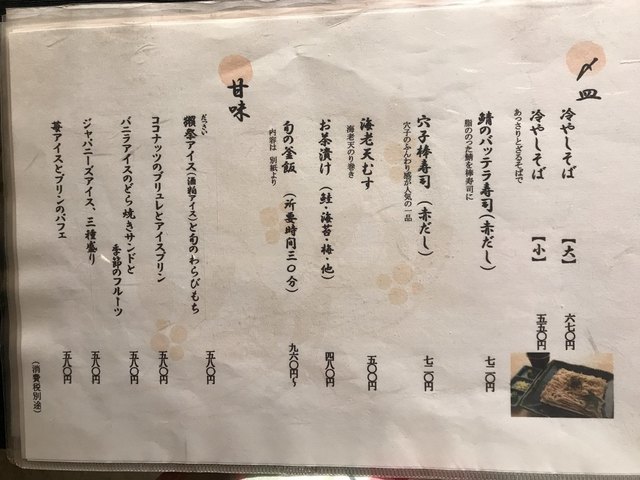 〆皿
冷やしそば 【大】 六七〇円
冷やしそば 【小】 五五〇円
あっさりとざるそばで
鯖のバッテラ寿司(赤だし) 七二〇円
脂ののった鯖を棒寿司に
穴子棒寿司(赤だし) 七二〇円
穴子のふんわり感が人気の一品
海老天むす 五〇〇円
海老天のり巻き
お茶漬け(鮭・海苔・梅・他) 四八〇円
旬の釜飯 (所要時間三〇分) 九六〇円〜
内容は 別紙より
甘味
だっさい
獺祭アイス(酒粕アイス)と旬のわらびもち 五八〇円
ココナッツのブリュレとアイスプリン 五八〇円
バニラアイスのどら焼きサンドと
季節のフルーツ 五八〇円
ジャパニーズアイス、三種盛り 五八〇円
苺アイスとプリンのパフェ 五八〇円
(消費税別途)